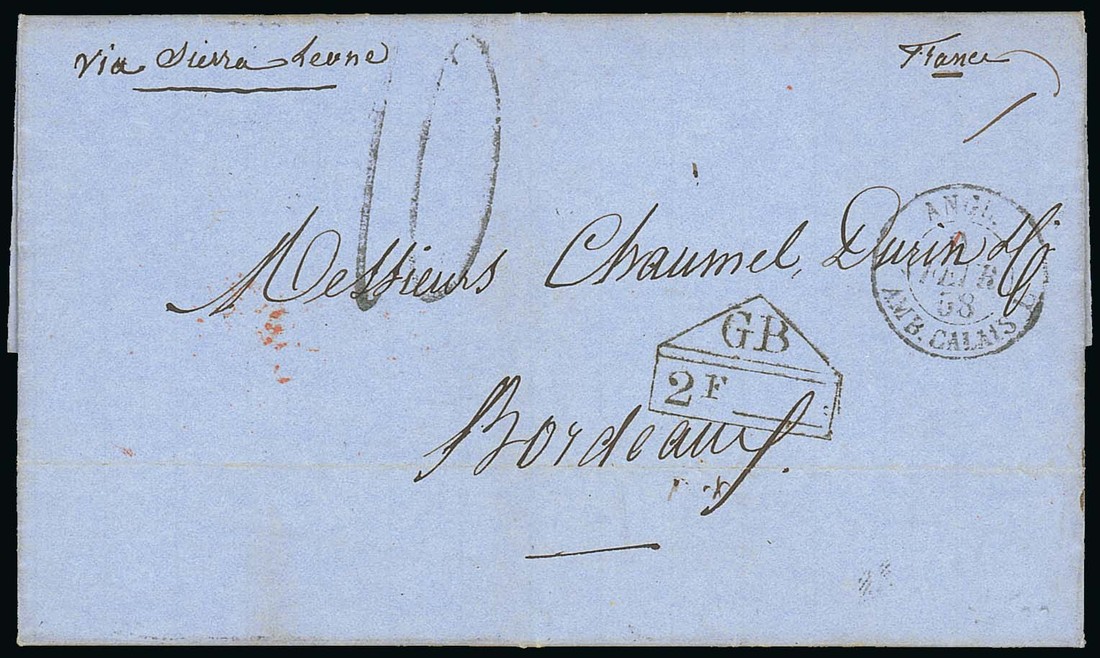 via Sierra Leone
France
10
Messieurs Chaumel, Durin &
Bordeaux.
ANGL.
FEVR
58
AMB. CALAIS
GB
2F